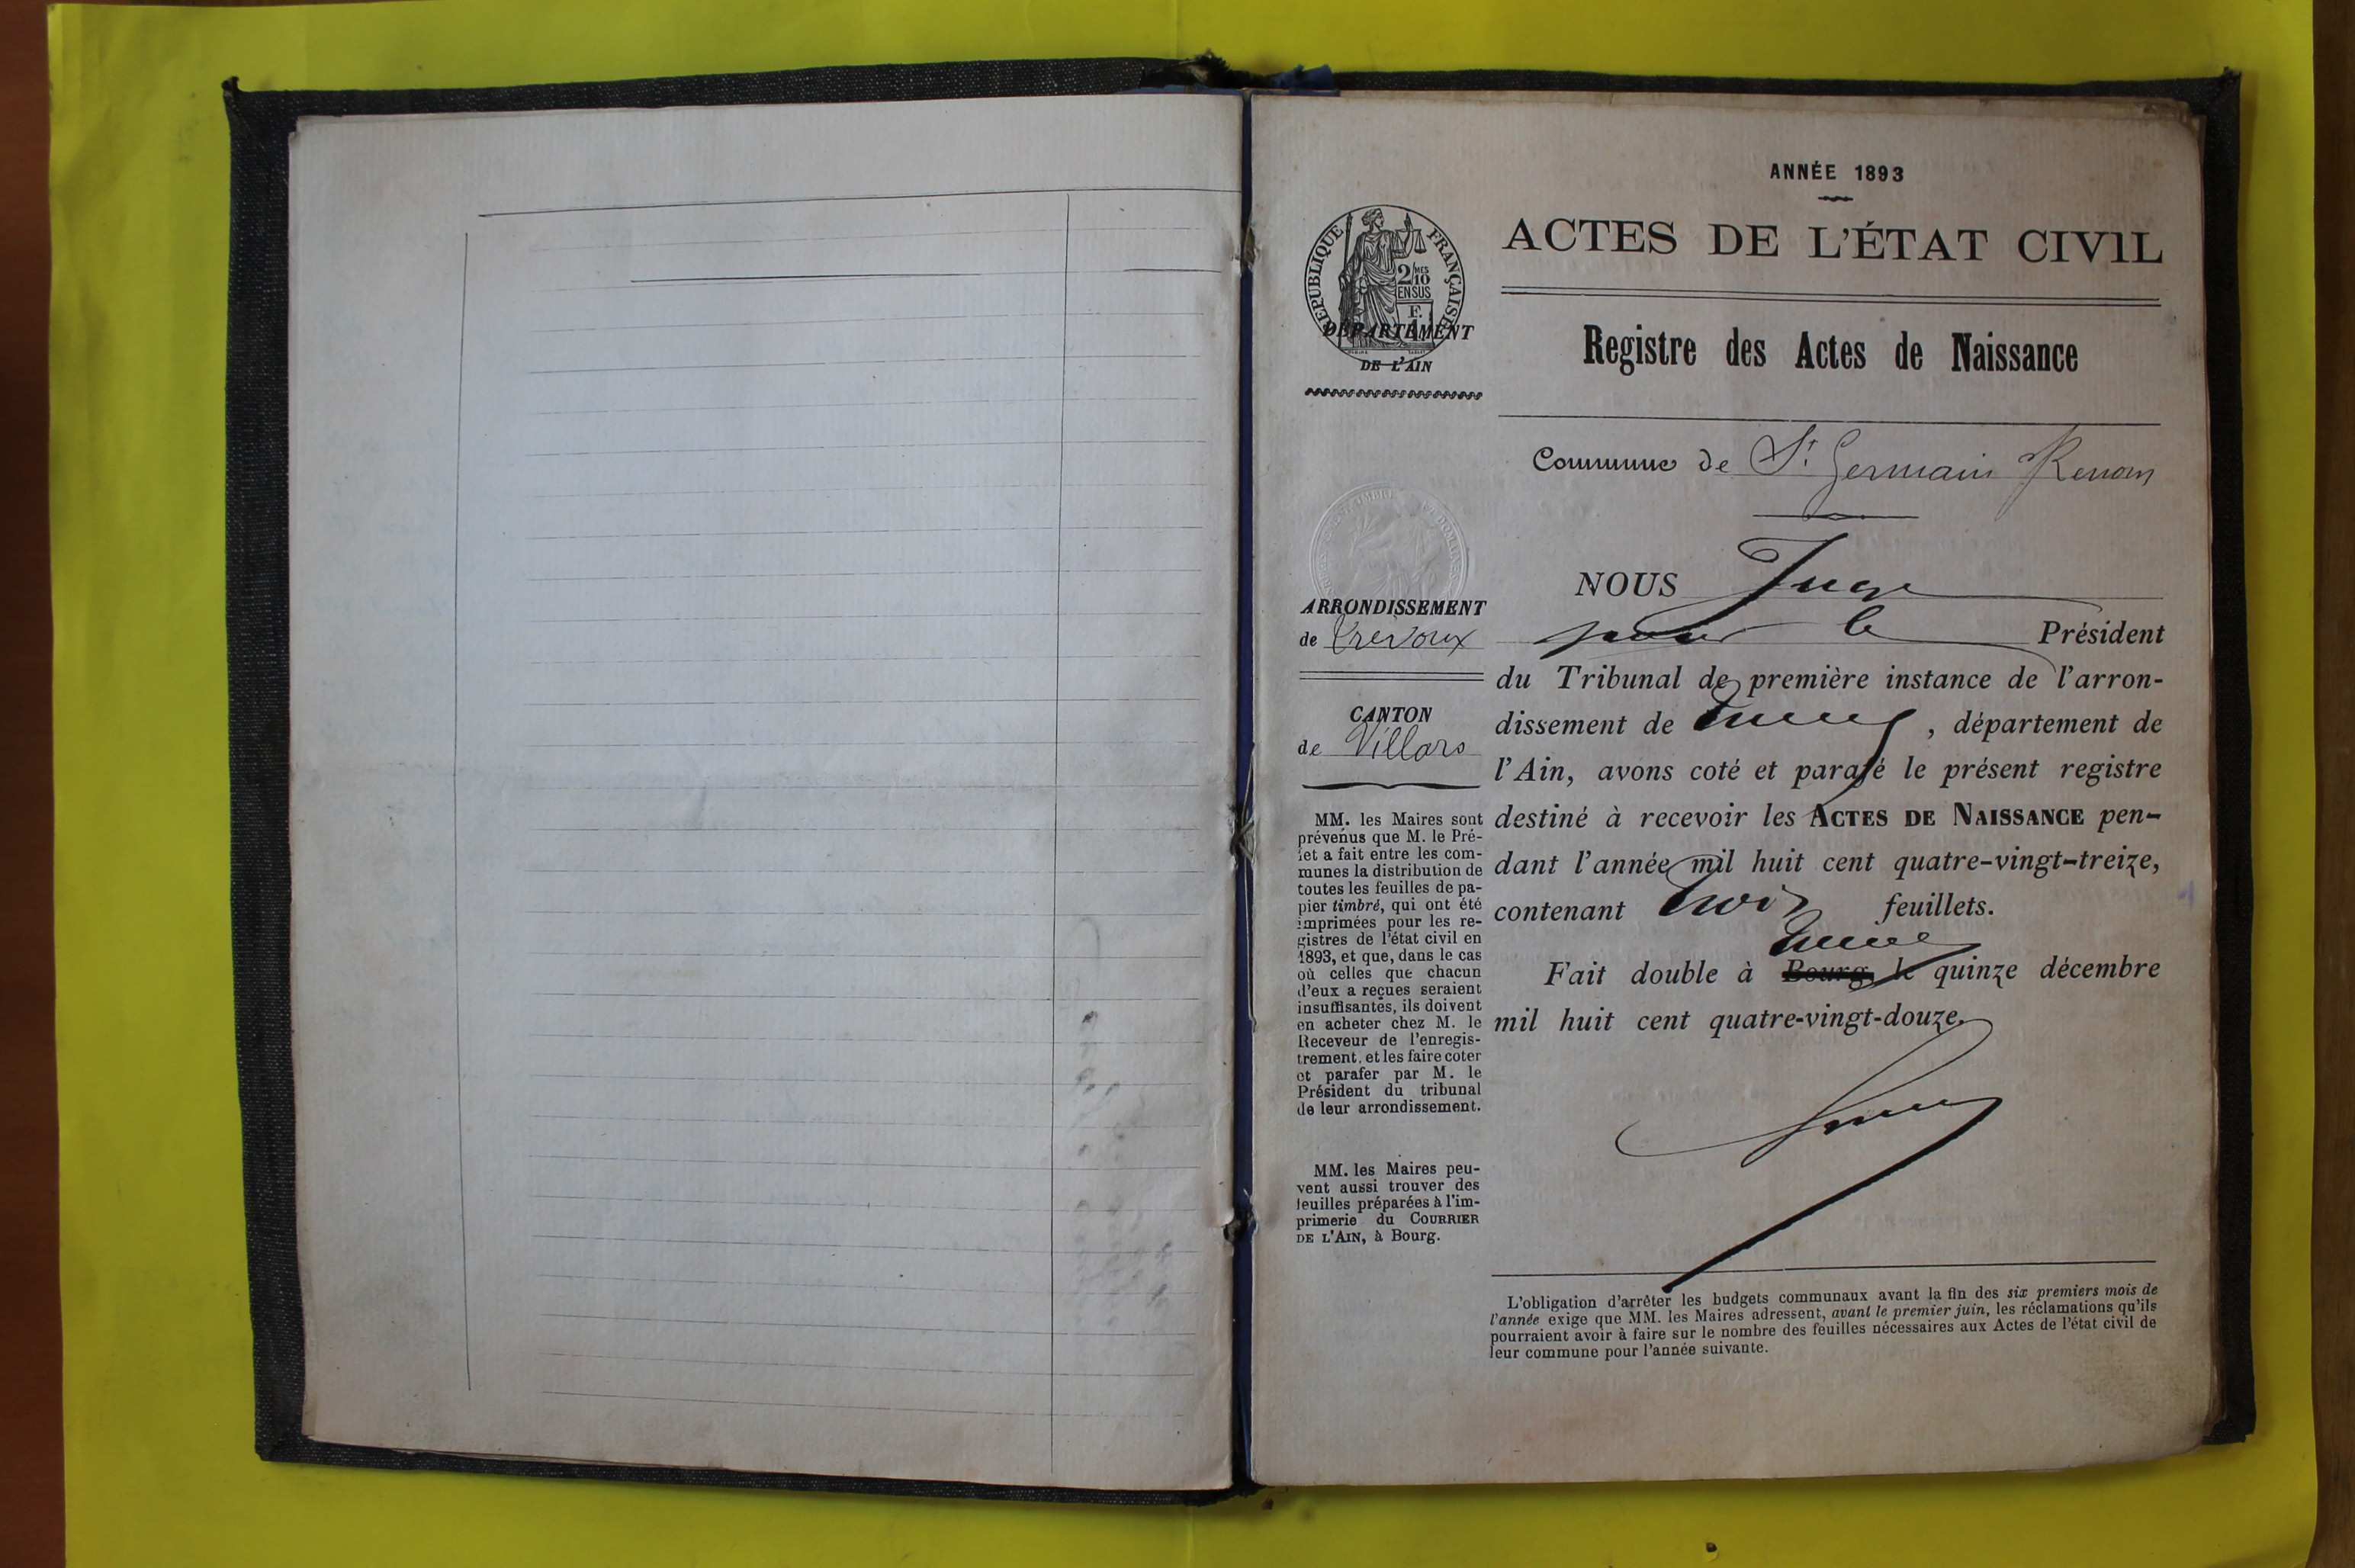 ANNÉE 1893
ACTES DE L'ÉTAT CIVIL
Registre des Actes de Naissance
Commune de St Germain Renom
RÉPUBLIQUE FRANÇAISE
2/10MES
EN SUS
F.
DÉPARTEMENT
DE L'AIN
ARRONDISSEMENT
de Trévoux
CANTON
de Villars
MM. les Maires sont
prévenus que M. le Pré-
fet a fait entre les com-
munes la distribution de
toutes les feuilles de pa-
pier timbré, qui ont été
imprimées pour les re-
gistres de l'état civil en
1893, et que, dans le cas
où celles que chacun
d'eux a reçues seraient
insuffisantes, ils doivent
en acheter chez M. le
Receveur de l'enregis-
trement, et les faire coter
et parafer par M. le
Président du tribunal
de leur arrondissement.
MM. les Maires peu-
vent aussi trouver des
feuilles préparées à l'im-
primerie du COURRIER
DE L'AIN, à Bourg.
NOUS Juge
pour le Président
du Tribunal de première instance de l'arron-
dissement de Trévoux, département de
l'Ain, avons coté et parafé le présent registre
destiné à recevoir les ACTES DE NAISSANCE pen-
dant l'année mil huit cent quatre-vingt-treize,
contenant trois feuillets.
Trévoux
Fait double à Bourg le quinze décembre
mil huit cent quatre-vingt-douze.
L'obligation d'arrêter les budgets communaux avant la fin des six premiers mois de
l'année exige que MM. les Maires adressent, avant le premier juin, les réclamations qu'ils
pourraient avoir à faire sur le nombre des feuilles nécessaires aux Actes de l'état civil de
leur commune pour l'année suivante.